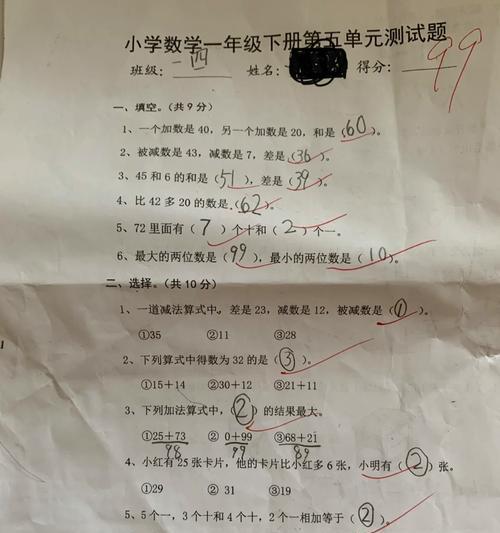 小学数学一年级下册第五单元测试题
班级：一四 姓名： 得分：99
一、填空。（共 9 分）
1、一个加数是 40，另一个加数是 20，和是（60）。
2、被减数是 43，减数是 7，差是（36）。
3、45 和 6 的和是（51），差是（39）。
4、比 42 多 20 的数是（62）。
5、72 里面有（7）个十和（2）个一。
6、最大的两位数是（99），最小的两位数是（10）。
二、选择。（共 10 分）
1、一道减法算式中，差是 23，减数是 12，被减数是（①）。
①35 ②11 ③28
2、下列算式中得数为 32 的是（③）。
①15+14 ②30+12 ③21+11
3、下列加法算式中，（②）的结果最大。
①25+73 ② 0+99 ③68+21
98 99 89
4、小红有 25 张卡片，他的卡片比小红多 6 张，小明有（②）张。
①29 ② 31 ③19
5、5 个一，3 个十和 4 个十，2 个一相加等于（②）。